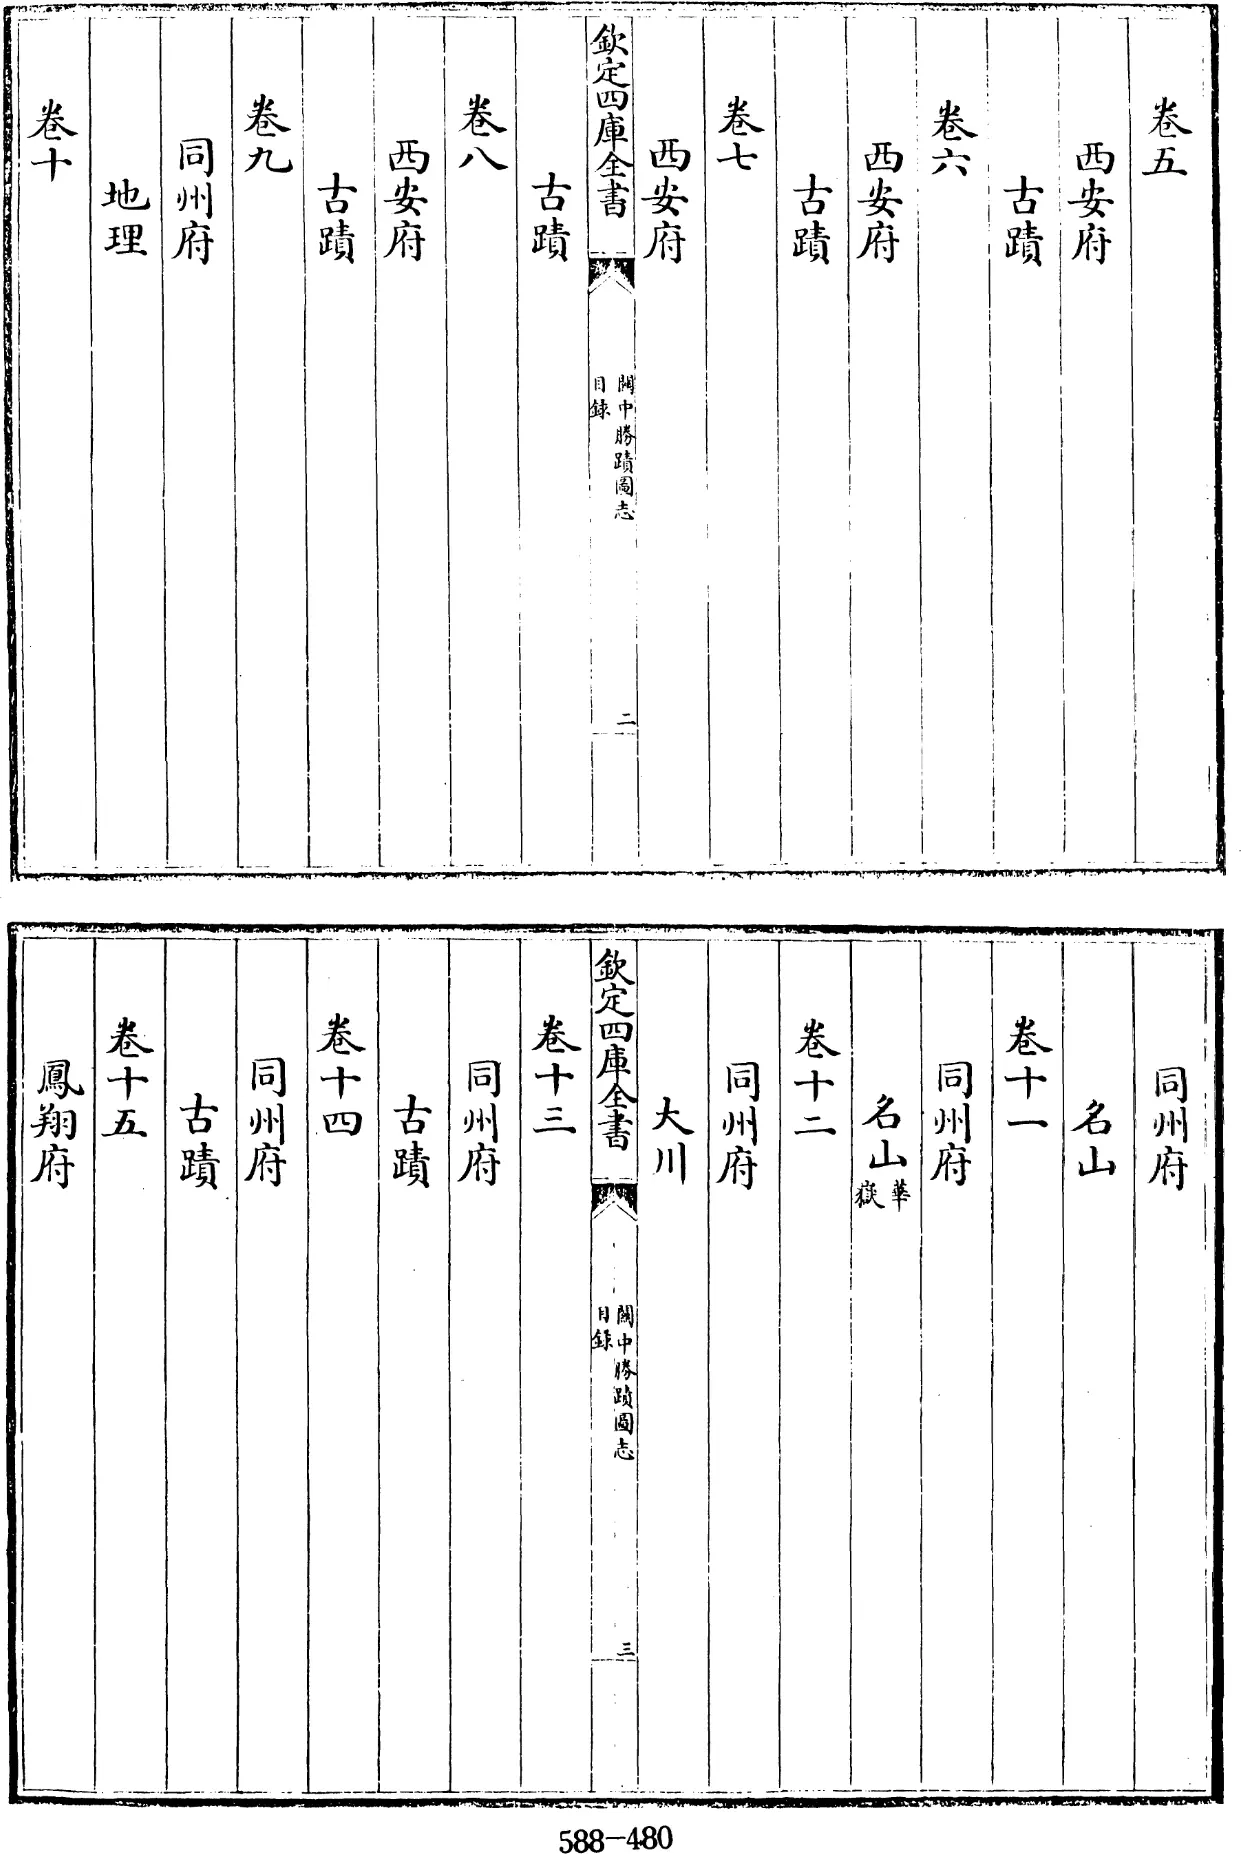 卷五
西安府
古蹟
卷六
西安府
古蹟
卷七
西安府
欽定四庫全書
關中勝蹟圖志
目錄
二
古蹟
卷八
西安府
古蹟
卷九
同州府
地理
卷十
同州府
名山
卷十一
同州府
名山華嶽
卷十二
同州府
大川
欽定四庫全書
關中勝蹟圖志
目錄
三
卷十三
同州府
古蹟
卷十四
同州府
古蹟
卷十五
鳳翔府
588-480